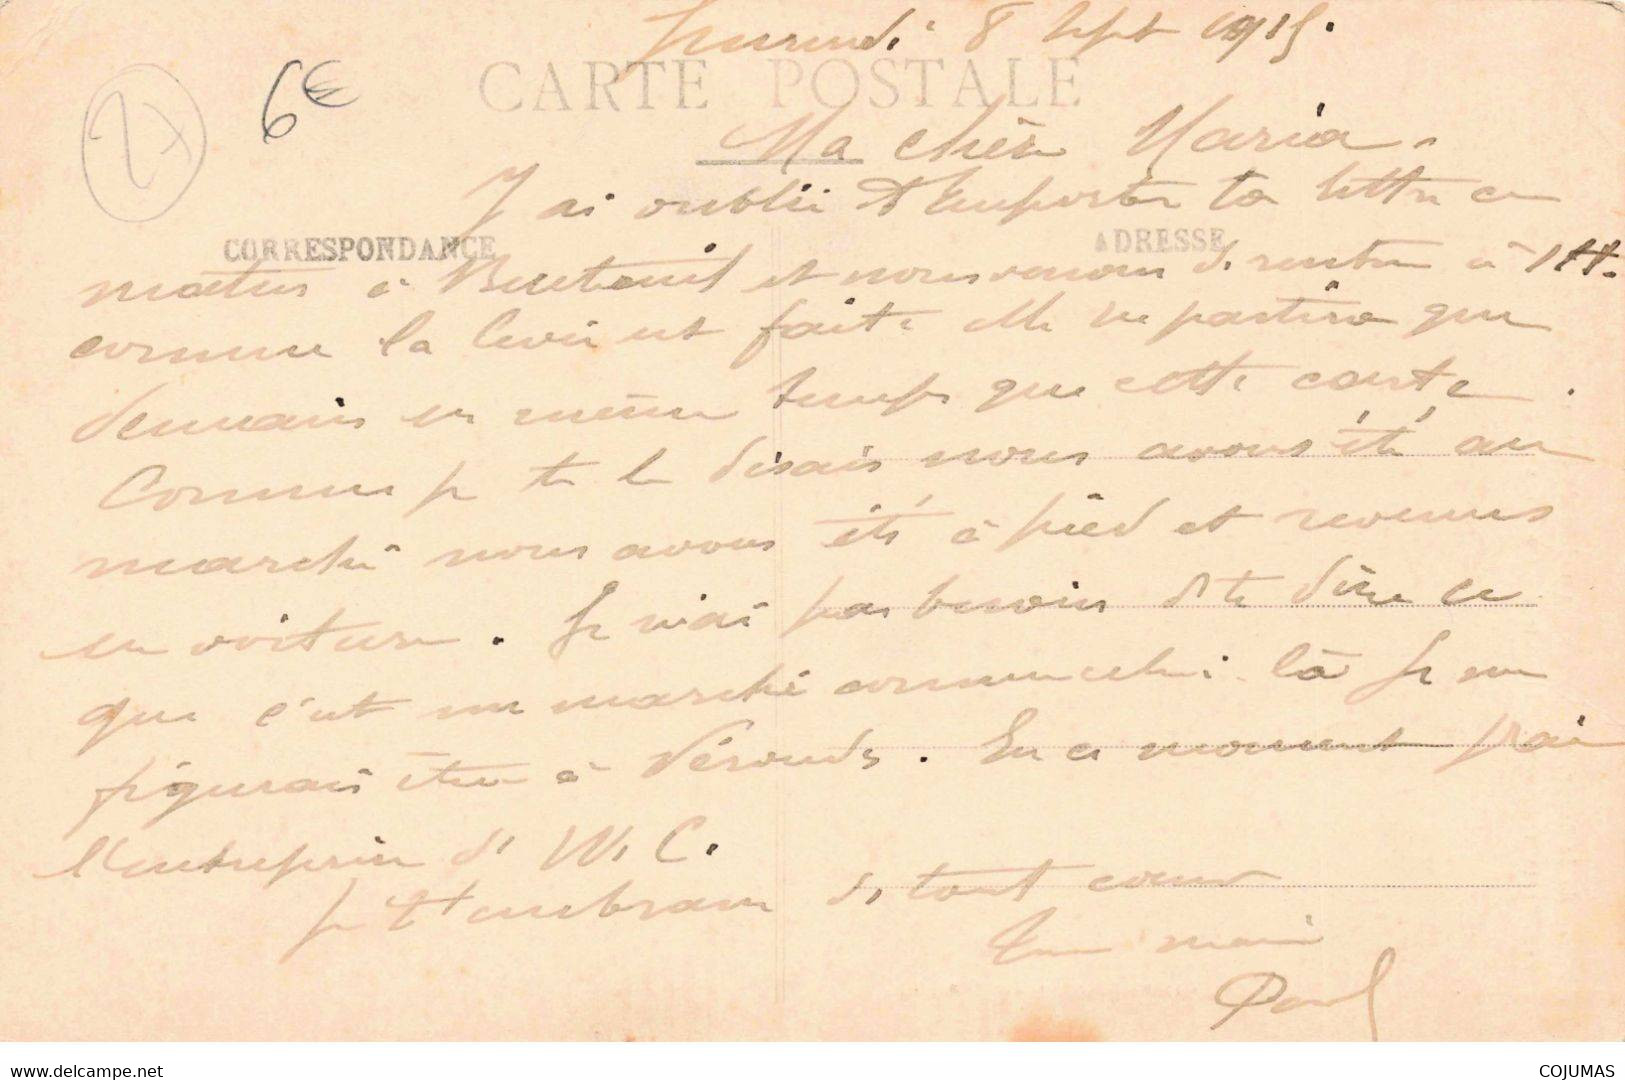 8 Sept 1915.
CARTE POSTALE
27
6€
Ma chère Maria.
J'ai oublié d'emporter ta lettre ce
CORRESPONDANCE
ADRESSE
matin à et nous venons de rentrer à 1 H.
comme la levée est faite elle ne partira que
demain en même temps que cette carte.
Comme je te le disais nous avons été au
marché nous avons été à pied et revenus
en voiture. Je n'ai pas besoin de te dire ce
que c'est un marché comme celui-là Je me
figurais être à . En ce moment j'ai
l'entreprise de W. C.
Je t'embrasse de tout coeur
Ton mari
Paul
www.delcampe.net
COJUMAS